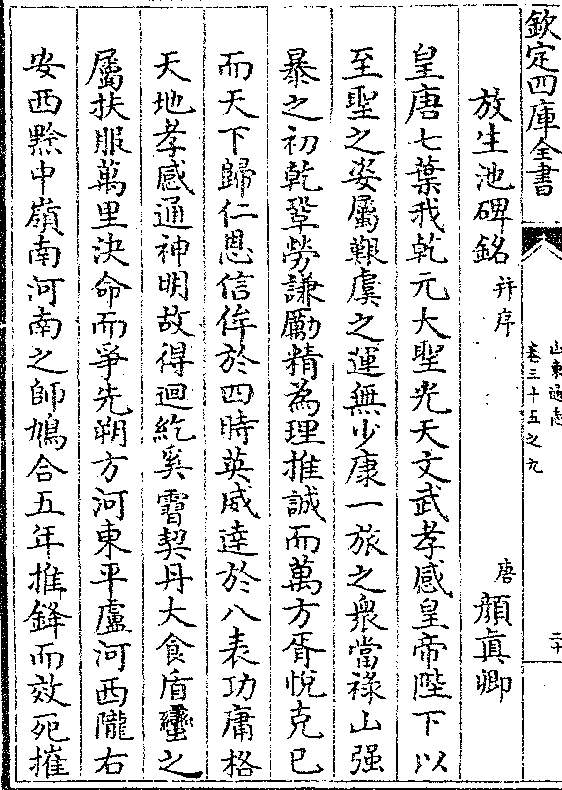 欽定四庫全書
山東通志
卷三十五之九
二十
放生池碑銘 并序 唐 顔真卿
皇唐七葉我乾元大聖光天文武孝感皇帝陛下以
至聖之姿屬艱虞之運無少康一旅之衆當祿山强
暴之初乾鞏勞謙勵精為理推誠而萬方胥悅克已
而天下歸仁恩信侔於四時英威達於八表功庸格
天地孝感通神明故得迴紇奚霫契丹大食盾蠻之
屬扶服萬里決命而爭先朔方河東平盧河西隴右
安西黔中嶺南河南之師鳩合五年推鋒而效死摧